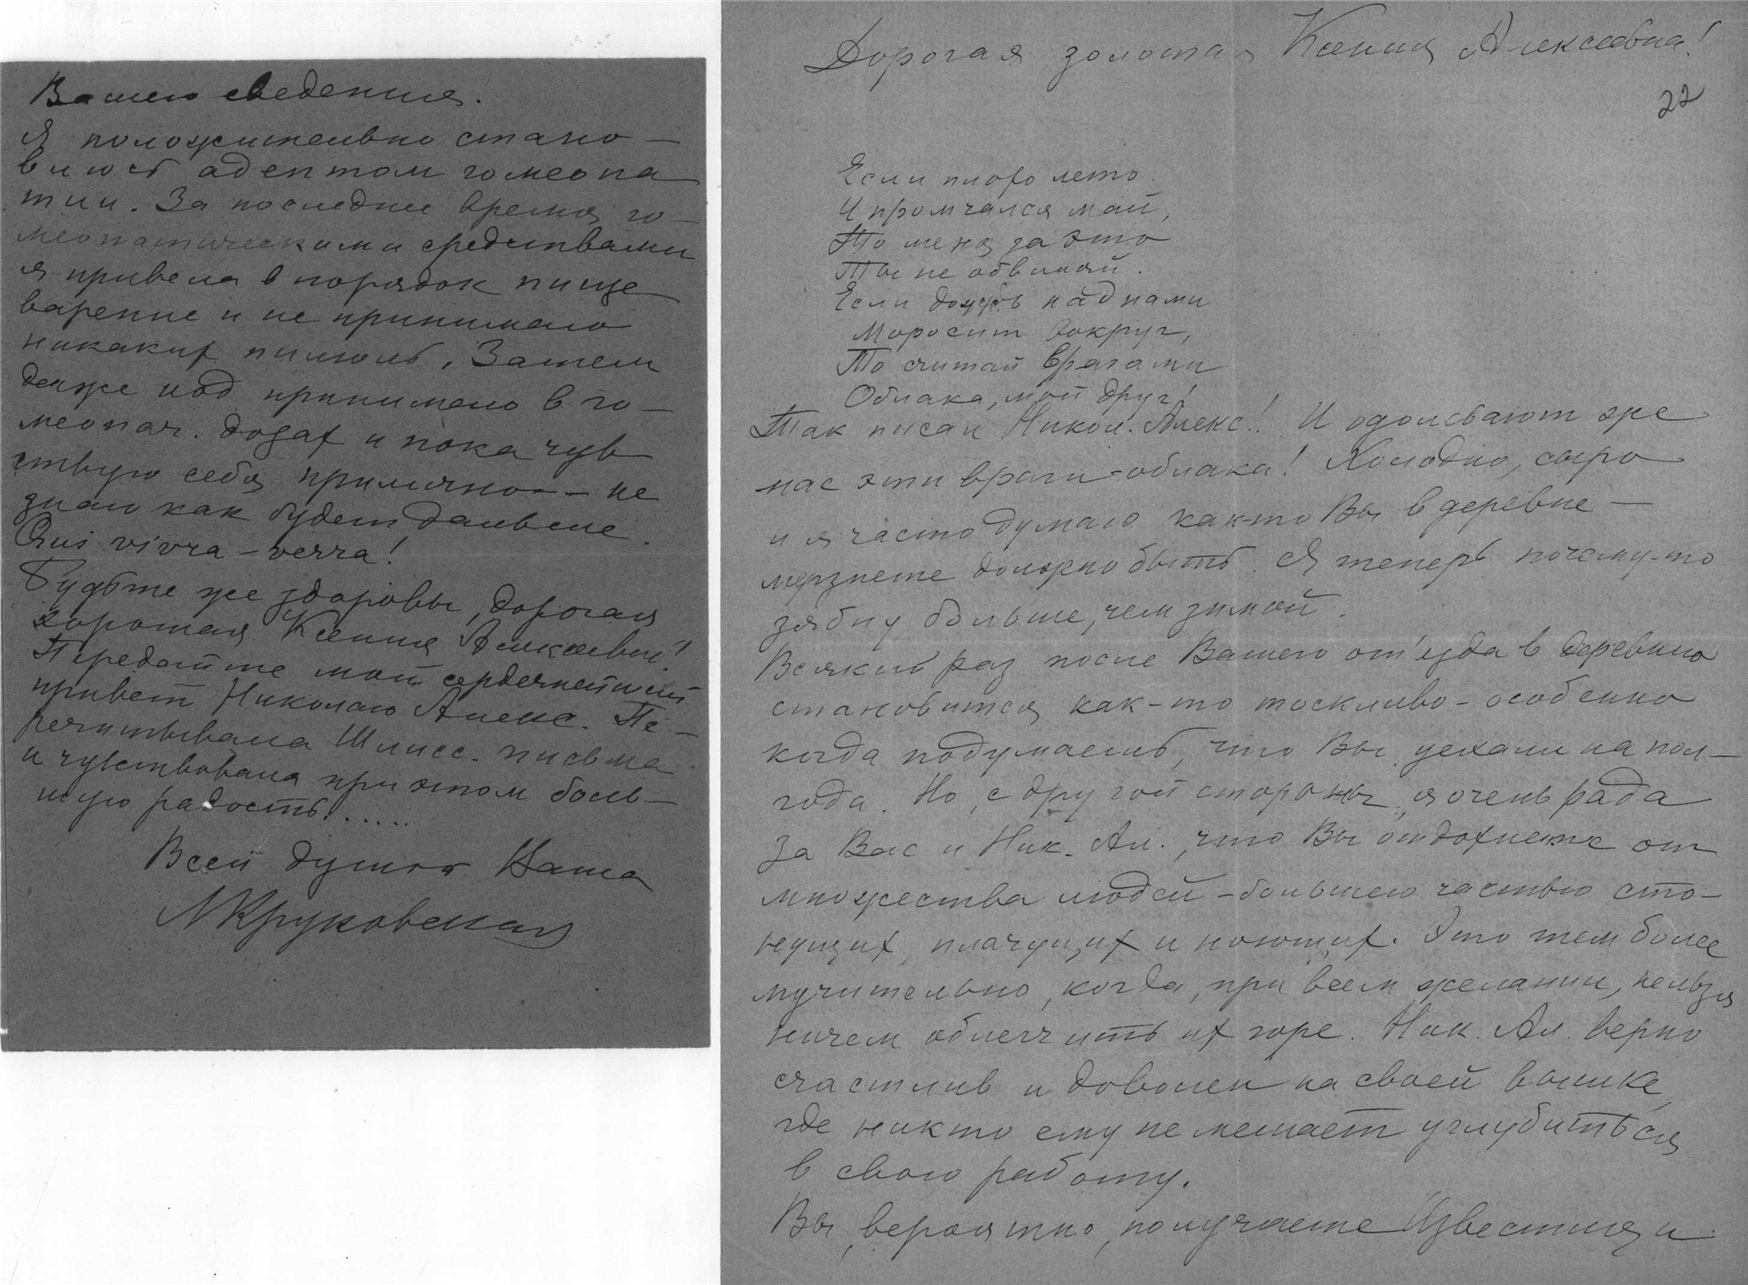 Вашего сведения.
Я положительно стано-
влюсь адептом гомеопа
тии. За последнее время го-
меопатическими средствами
я привела в порядок пище
варение и не принимаю
никаких пилюль. Затем
даже иод принимаю в го-
меопат. дозах и пока чув
ствую себя прилично - не
знаю как будет дальше.
Qui vivra - verra!
Будьте же здоровы, дорогая
хорошая Ксения Алексеевна!
Передайте мой сердечнейший
привет Николаю Алекс. Пе-
речитывала Шлисс. письма
и чувствовала при этом боль-
шую радость.....
Всей душой Ваша
МКруковская
Дорогая золотая Ксения Алексеевна!
22
Если плохо лето
И промчался май,
То меня за это
Ты не обвиняй.
Если дождь над нами
Моросит вокруг,
То считай врагами
Облака, мой друг!
Так писал Никол. Алекс.! И одолевают же
нас эти враги-облака! Холодно, сыро
и я часто думаю как-то Вы в деревне -
мерзнете должно быть. Я теперь почему-то
зябну больше, чем зимой.
Всякий раз после Вашего от'езда в деревню
становится как-то тоскливо - особенно
когда подумаешь, что Вы уехали на пол-
года. Но, с другой стороны, я очень рада
за Вас и Ник. Ал., что Вы отдохнете от
множества людей - большею частью сто-
нущих, плачущих и ноющих. Это тем более
мучительно, когда, при всем желании, нельзя
ничем облегчить их горе. Ник. Ал. верно
счастлив и доволен на своей вышке,
где никто ему не мешает углубиться
в свою работу.
Вы, вероятно, получаете Известия и